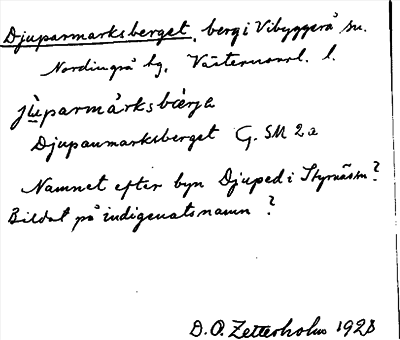 Djuparmarksberget, berg i Vibyggerå sn.
Nordingrå hg, Västernorrl. l.
jùparmárksbærja
Djupaumarksberget G. SM 2a
Namnet efter byn Djuped i Styrnäs sn?
Bildat på indigenatsnamn?
D. O. Zetterholm 1928